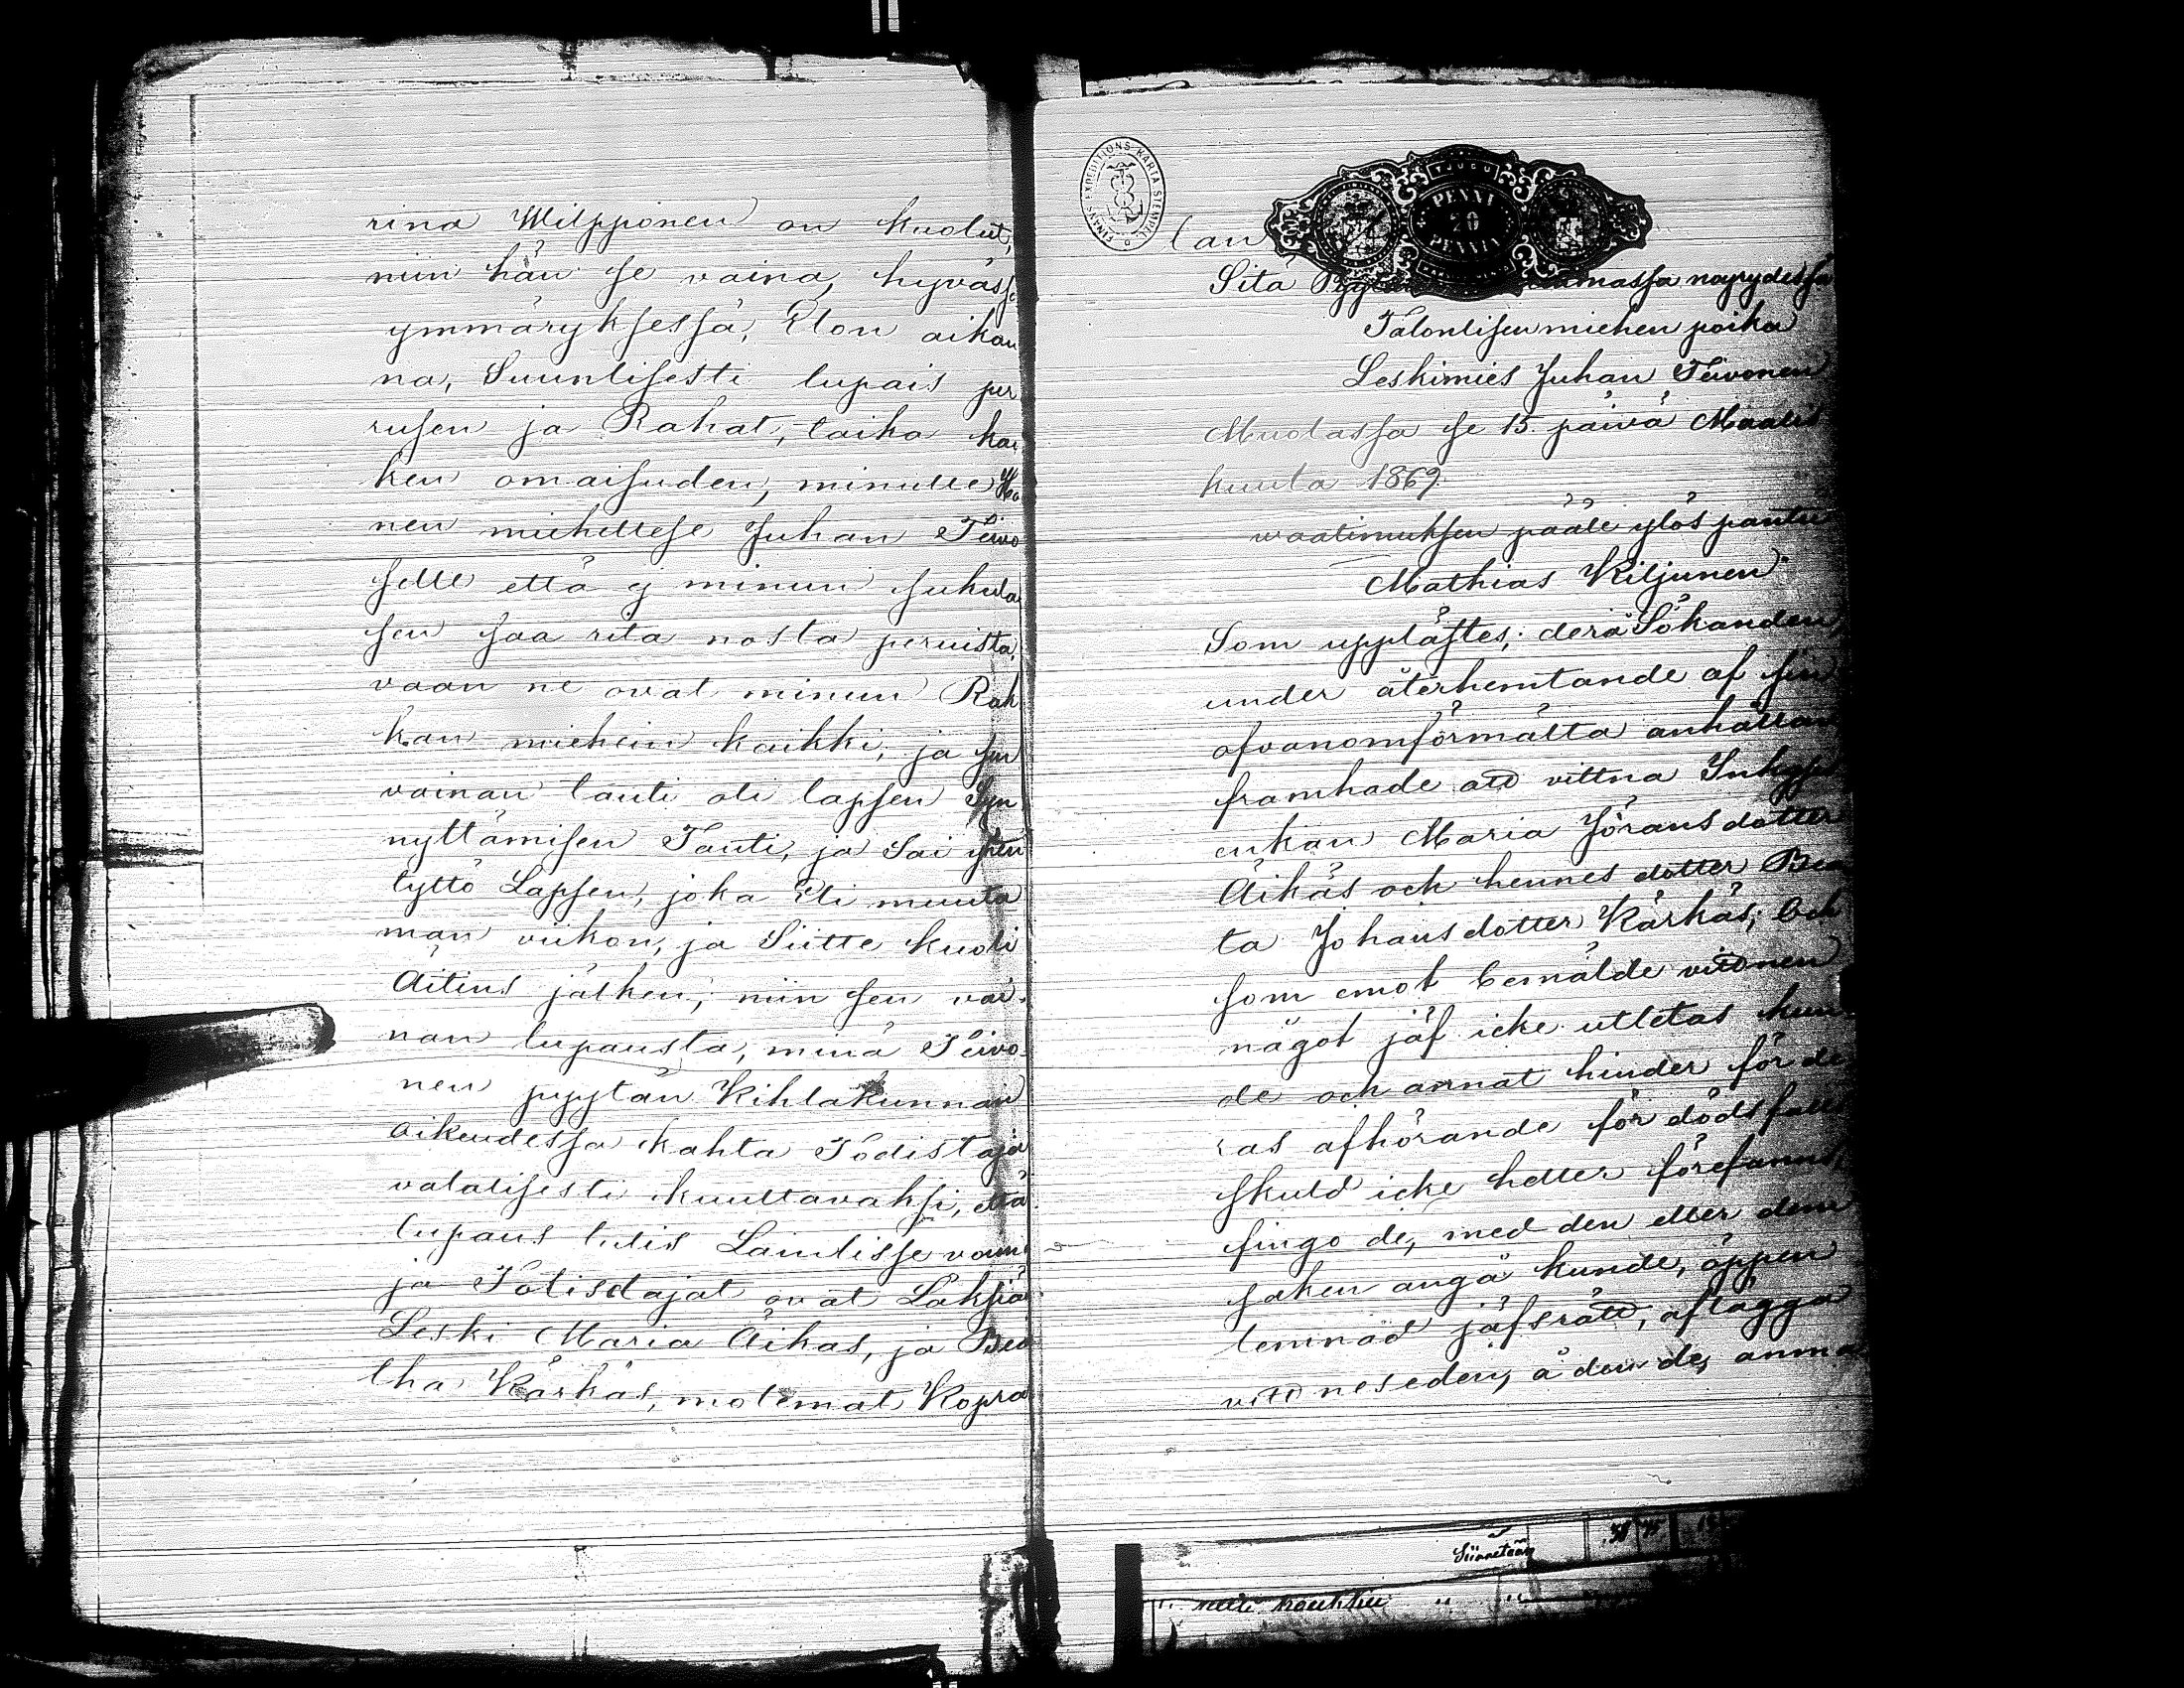 rina Wilpponen on kuolut,
niin hän se vaina, hyväss
ymmäryksessä, Elon aikan
na, Suunlisesti lupais per
rusen ja Rahat, taika kai
ken omaisuden, minulle Hä
nen miehellese Juhan Teivo
selle että ej minun sukula
sen saa rita nosta peruista,
vaan ne ovat minun Rak
kan miehein kaikki, ja sen
vainan tauti oli lapsen Syn
nyttämisen Tauti, ja Sai sen
tyttö Lapsen, joka Eli muuta
man viikon, ja Siitte kuoli
Äitins jälken; niin sen vai-
nan lupausta, minä Teivo-
nen pyytän Kihlakunnan
oikeudessa kahta Todistaja
valalisesti kuultavaksi, että
lupaus tulis Lainlisse voim
ja Totisdajat ovat Läksiä
Leski Maria Äikas, ja Bea
tha Kärkäs, molemat Kopra
lan
Sitä massa nöyrydessä
Talonlisen miehen poika
Leskimies Juhan Teivonen
Muolassa se 15. päivä Maalis
kuuta 1869.
waatimuksen pääle ylös pantu
Mathias Kiljunen.
Som uppläftes; derå Sökanden,
under återhemtande af sin
ofvanomförmälta anhållan
framhade att vittna Inhyses
enkan Maria Jöransdotter
Äikäs och hennes dotter Bea
ta Johansdotter Kärkäs; Och
som emot bemälde vittnen
något jäf icke utletas kun
de och annat hinder för de
ras afhörande för dödsfalls
skuld icke heller förefanns,
fingo de, med den eller dem
saken angå kunde, öppen
lemnad jäfsrätt, aflägga
vittneseden, å den de, anma
Siirretään